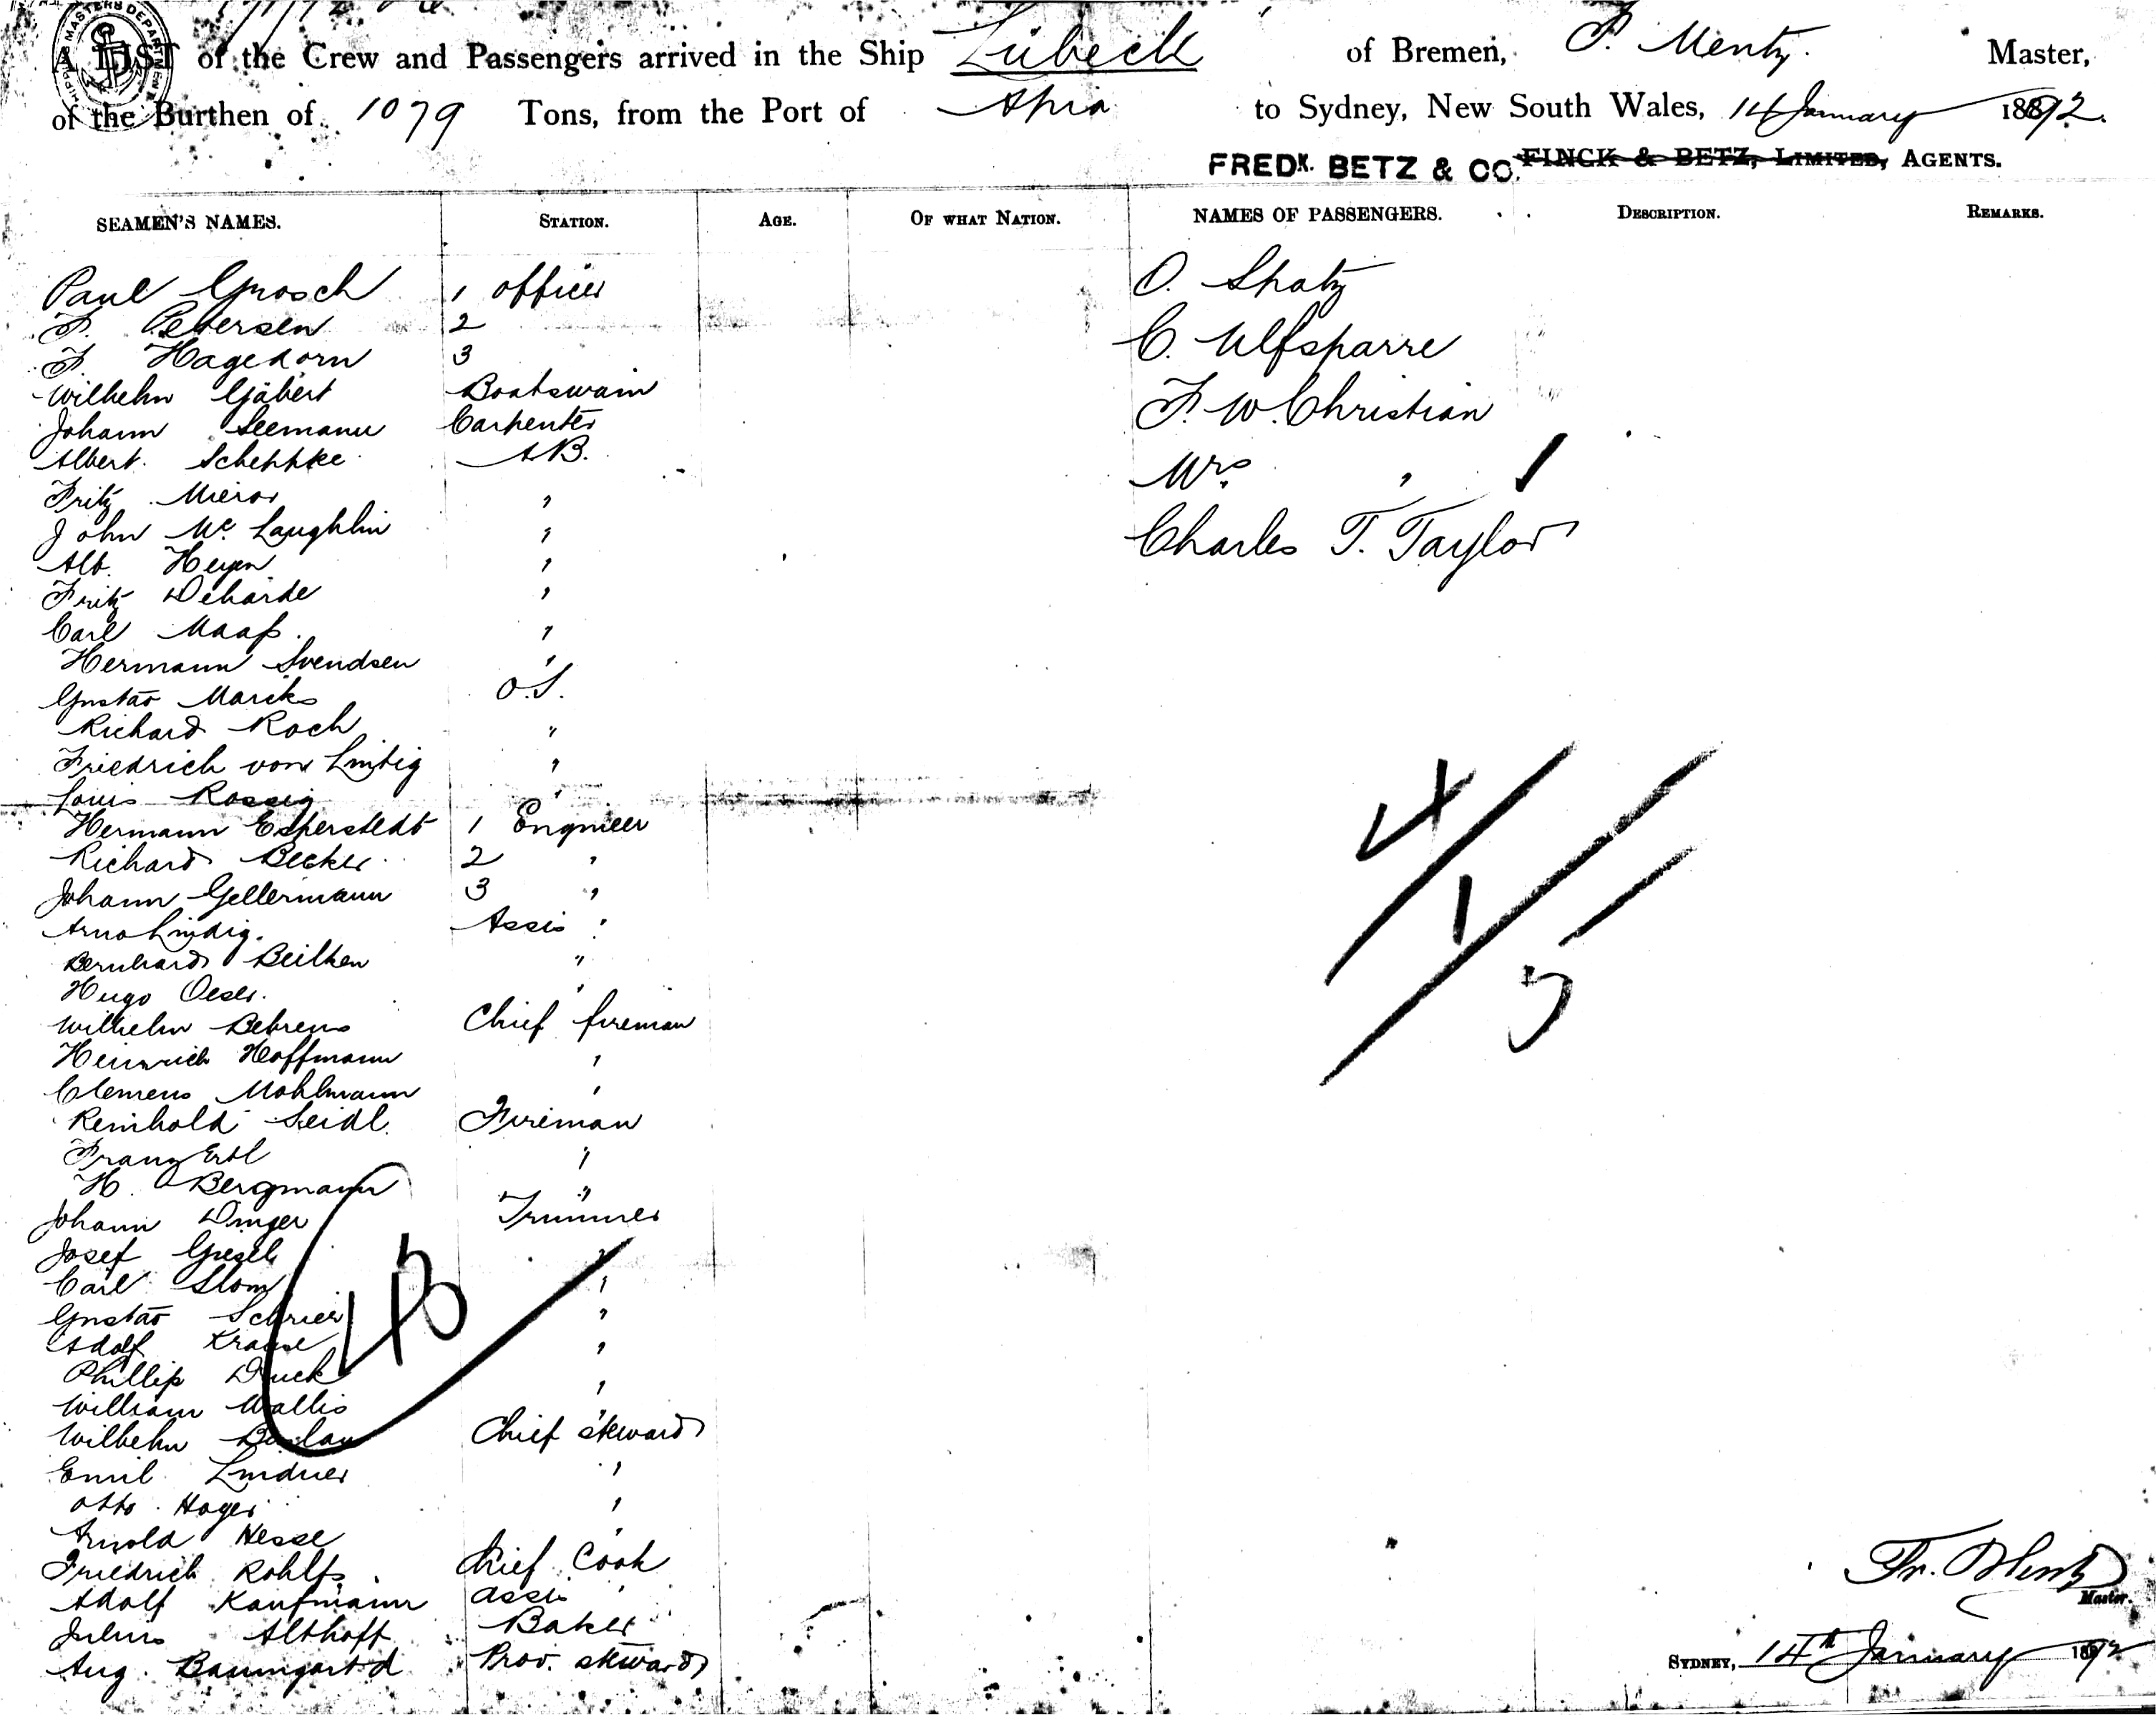 A LIST of the Crew and Passengers arrived in the Ship Lübeck of Bremen, F. Mentz. Master,
of the Burthen of 1079 Tons, from the Port of Apia to Sydney, New South Wales, 14 January 1892.
FREDK. BETZ & CO. FINCK & BETZ, LIMITED, AGENTS.
SEAMEN'S NAMES. STATION. AGE. OF WHAT NATION. NAMES OF PASSENGERS. DESCRIPTION. REMARKS.
Paul Grosch 1 officer O. Shatz
F. Petersen 2
F. Hagedorn 3 C. Ulfsparre
Wilhelm Gäbert Boatswain
Johann Seemann Carpenter F. W. Christian
Albert Scheppke A.B.
Fritz " Mrs "
John Mc Laughlin "
Alb. Heyen " Charles T. Taylor
Fritz Deharde "
Carl Maaß "
Hermann Svendsen "
Gustav Marcks O.S.
Richard Koch "
Friedrich von "
Louis Rossig "
Hermann Esperstedt 1 Engineer
Richard Becker 2 "
Johann Gellermann 3 "
Arno Lindig. Assis "
Bernhard Beilken "
Hugo Oeser. "
Wilhelm Behrens Chief fireman
Heinrich Hoffmann "
Clemens Mohlmann "
Reinhold Seidl. Fireman
Franz Ertl "
H. Bergmann "
Johann Trimmer
Josef "
Carl "
Gustav "
Adolf Krause "
Phillip Druck "
William Wallis "
Wilhelm Chief steward
Emil Lindner "
Otto Hoyer "
Arnold Hesse "
Friedrich Rohlfs Chief Cook
Adolf Kaufmann assis "
Julius Althoff Baker
Aug. Baumgardt Prov. steward
4
1
5
43
Fr. Mentz
Master.
SYDNEY, 14th January 1892